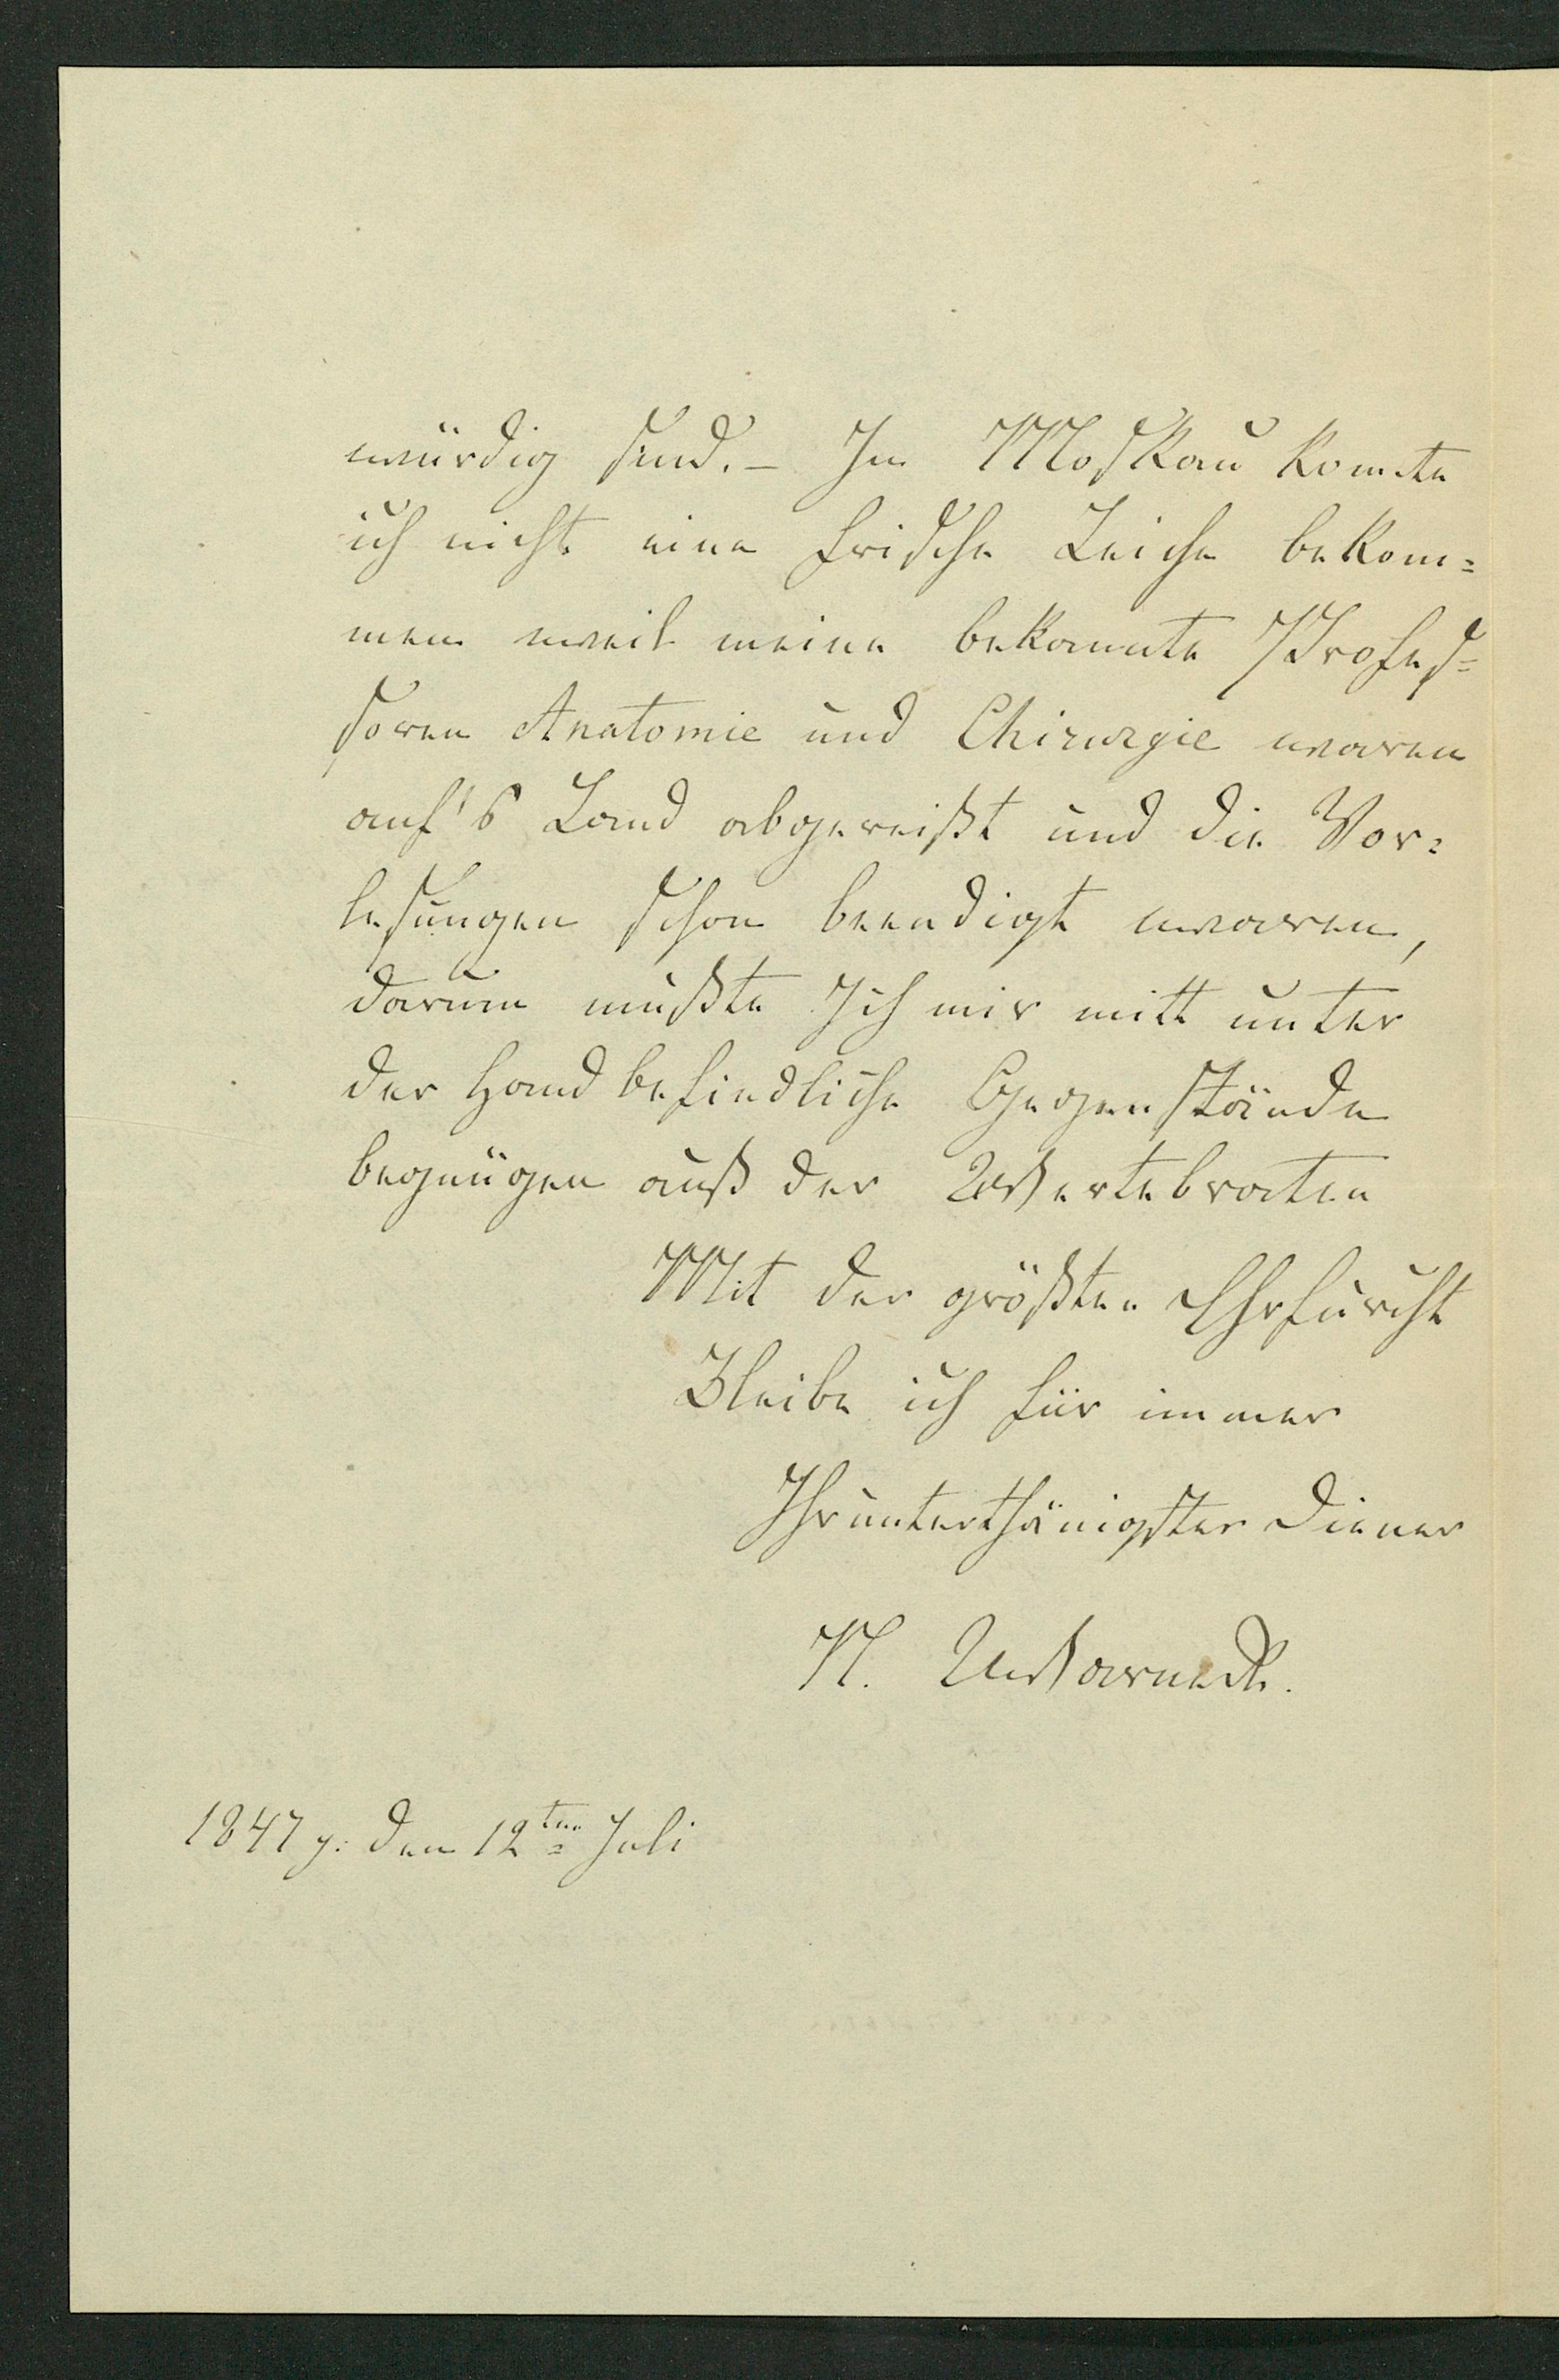 würdig sind. – In Moskau konnte
ich nicht eine frische Leiche bekom=
men weil meine bekannte Profes=
soren Anatomie und Chirurgie waren
auf's Land abgereißt und die Vor=
lesungen schon beendigt waren,
darum mußte Ich mir mitt unter
der Hand befindliche Gegenstände
begnügen auß der Wertebraten
Mit der größten Ehrfurcht
Bleibe ich für immer
Ihr unterthänigster Diener
N. Warnek.
1847 y: den 12ten Juli